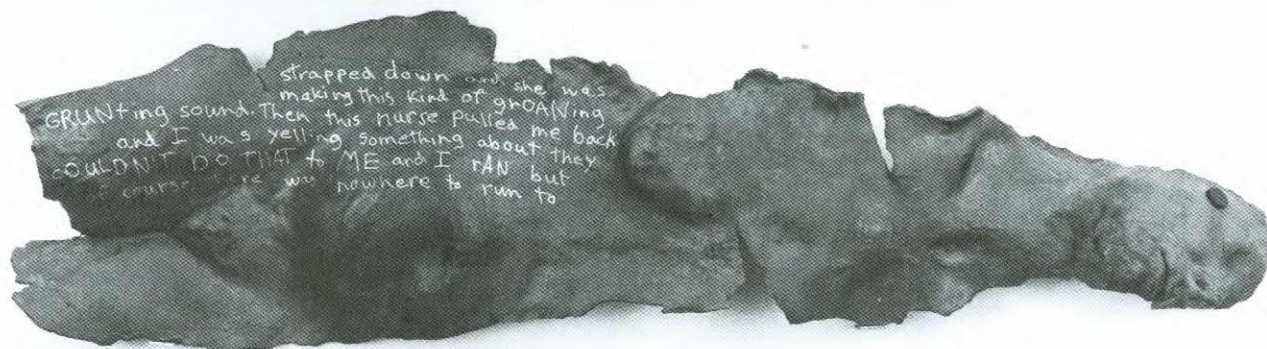 strapped down and she was
making this kind of grOANing
GRUNting sound. Then this nurse pulled me back
and I was yelling something about they
cOULDN'T DO THAT to ME and I rAN but
of course there was nowhere to run to